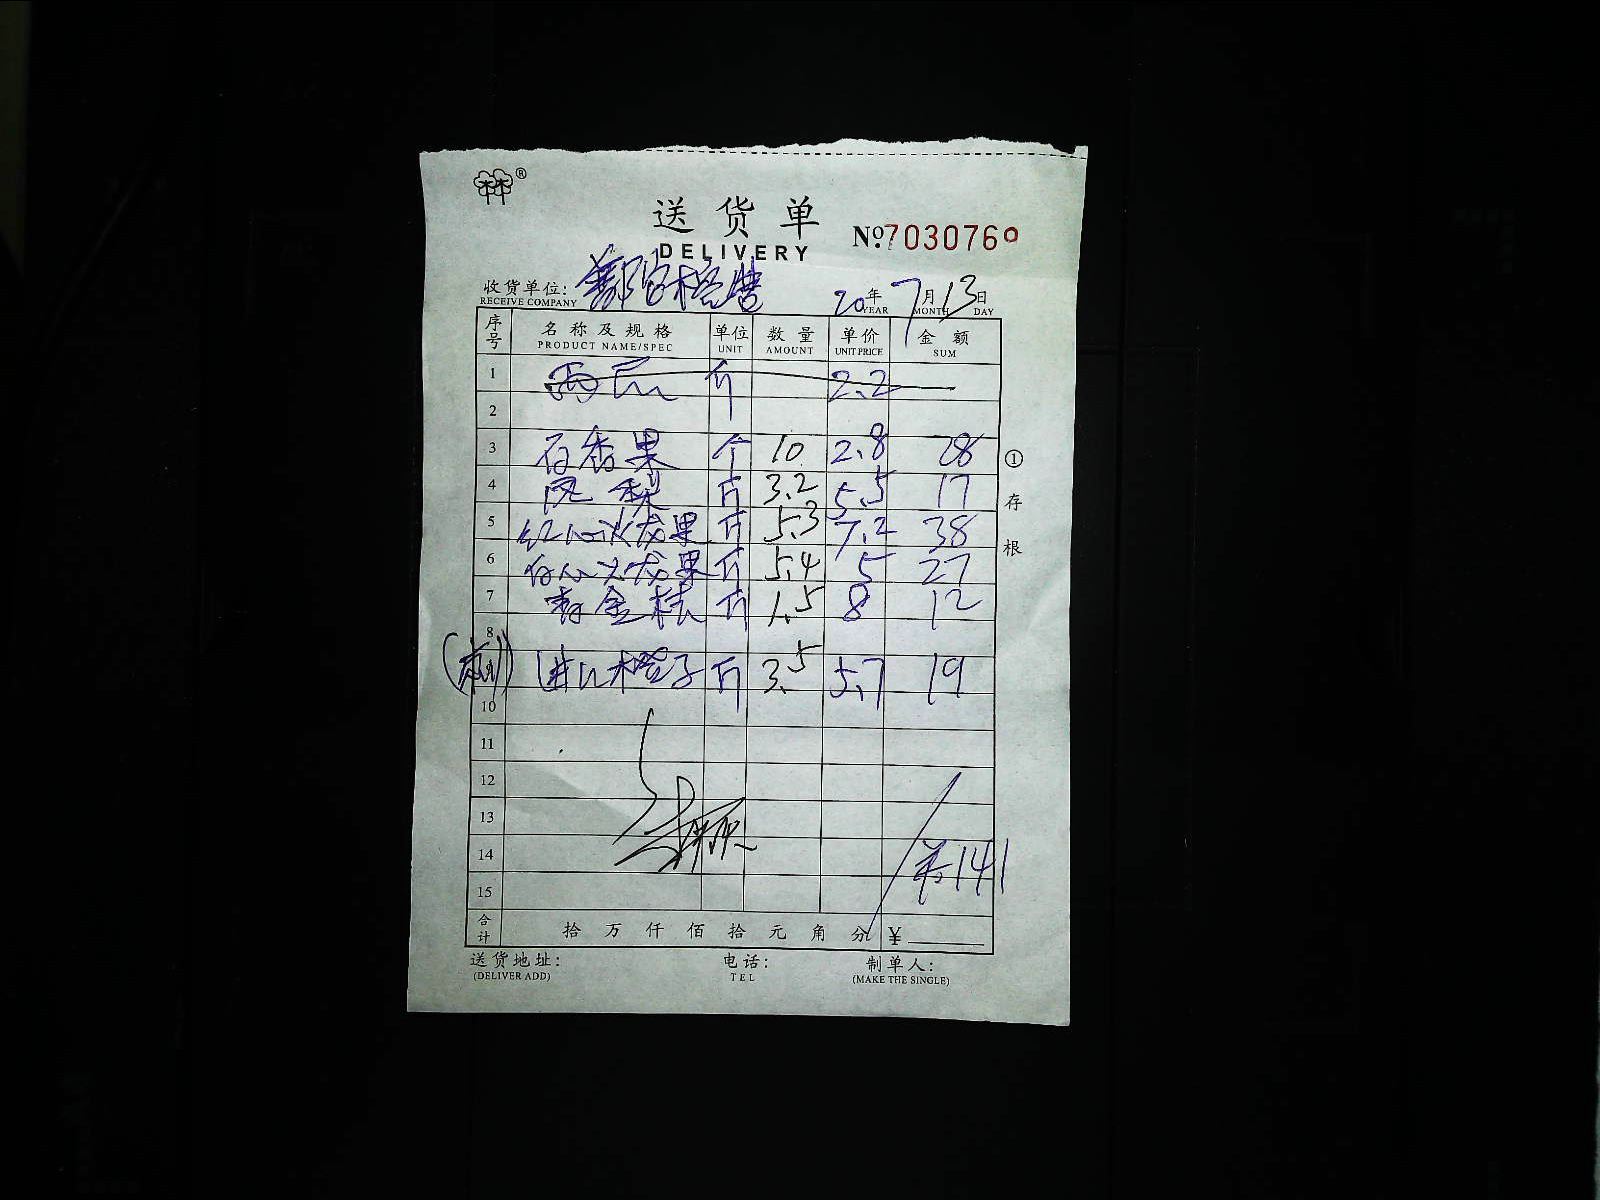 送货单 №7030769
DELIVERY
收货单位: 20年7月13日
RECEIVE COMPANY YEAR MONTH DAY
序号 名称及规格 单位 数量 单价 金额
PRODUCT NAME/SPEC UNIT AMOUNT UNIT PRICE SUM
1 西瓜 斤 2.2
2
3 百香果 个 10 2.8 28
4 凤梨 斤 3.2 5.5 17
5 红心火龙果 斤 5.3 7.2 38
6 白心火龙果 斤 5.4 5 27
7 青金桔 斤 1.5 8 12
8
进口橙子 斤 3.5 5.7 19
10
11
12
13
14 141
15
合计 拾万仟佰拾元角分 ¥
送货地址: 电话: 制单人:
(DELIVER ADD) TEL (MAKE THE SINGLE)
①存根